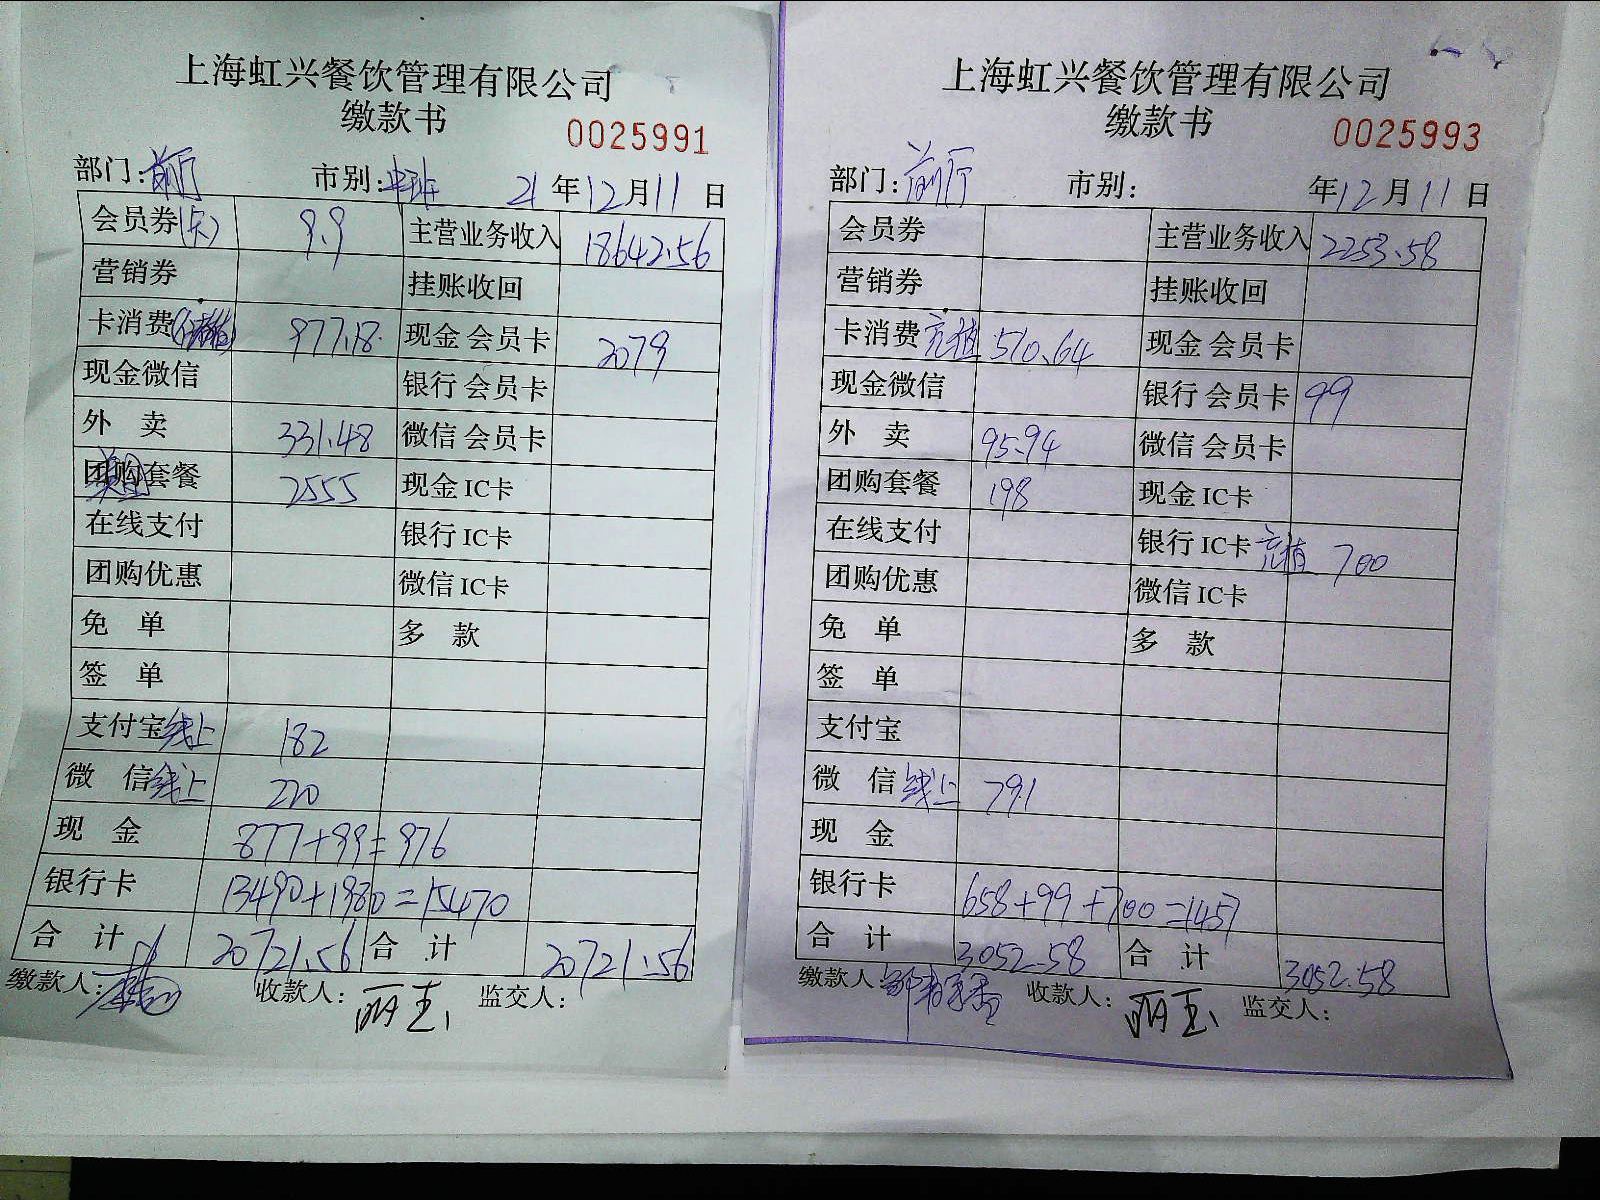 上海虹兴餐饮管理有限公司
缴款书
0025991
部门:前厅 市别: 21年12月11日
会员券(卡) 9.9 主营业务收入 18642.56
营销券 挂账收回
卡消费 977.18 现金 会员卡 2079
现金微信 银行 会员卡
外 卖 331.48 微信 会员卡
团购套餐 2555 现金 IC卡
在线支付 银行 IC卡
团购优惠 微信 IC卡
免 单 多 款
签 单
支付宝线上 182
微 信线上 220
现 金 877+99=976
银行卡 13490+1980=15470
合 计 20721.56 合 计 20721.56
缴款人: 收款人: 丽玉 监交人:
上海虹兴餐饮管理有限公司
缴款书
0025993
部门:前厅 市别: 年12月11日
会员券 主营业务收入 2253.58
营销券 挂账收回
卡消费充值 510.64 现金 会员卡
现金微信 银行 会员卡 99
外 卖 95.94 微信 会员卡
团购套餐 198 现金 IC卡
在线支付 银行 IC卡充值 700
团购优惠 微信 IC卡
免 单 多 款
签 单
支付宝
微 信线上 791
现 金
银行卡 658+99+700=1457
合 计 3052.58 合 计 3052.58
缴款人: 收款人: 丽玉 监交人: